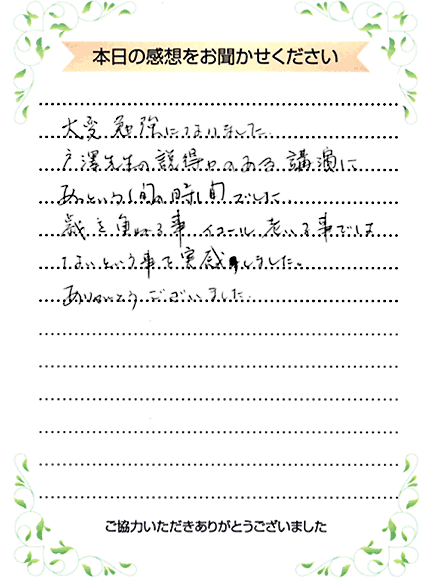 本日の感想をお聞かせください
大変勉強になりました。
戸澤先生の説得力のある講演に
あっという間の時間でした。
歳を重ねる事イコール老いる事では
ないという事を実感しました。
ありがとうございました。
ご協力いただきありがとうございました